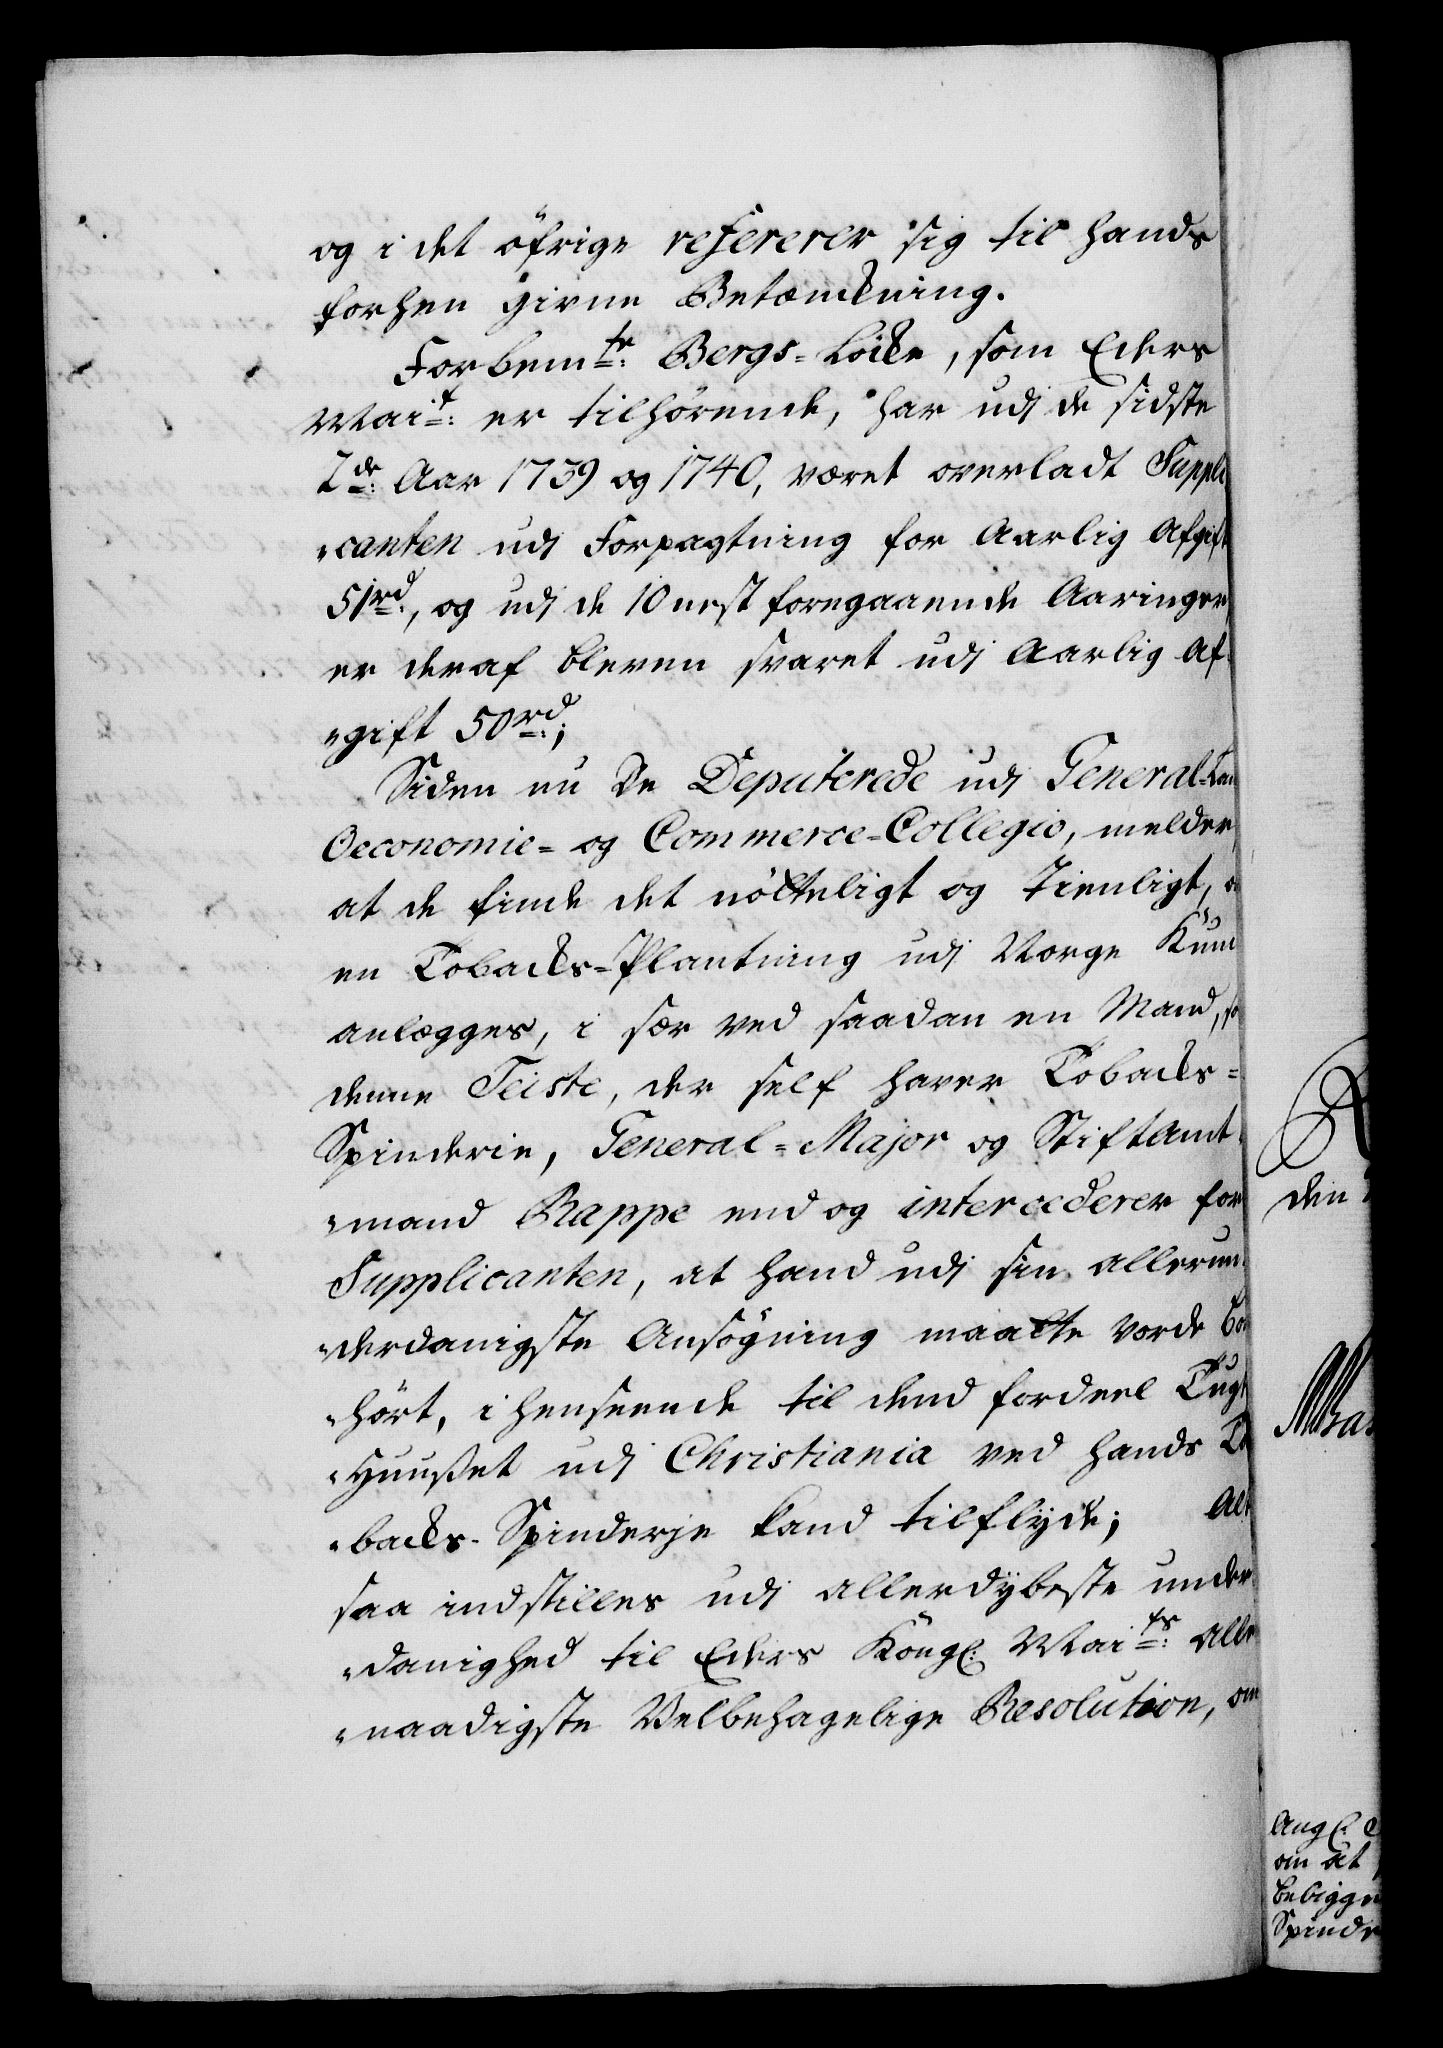 og i det öfrige refererer sig til hands
forhen givne Betænckning.
Forbemte: Bergs-Løcke, som Eders
Mait: er tilhörende, har udj de sidste
2de: Aar 1739 og 1740, været overladt Suppli
"canten udj Forpagtning for Aarlig Afgift
51rd:, og udj de 10 nest foregaaende Aaringer
er deraf bleven svaret udj Aarlig Af-
"gift 50rd:;
Siden nu De Deputerede udj General-Lan
Oeconomie- og Commerce-Collegio, melder,
at de finde det nötteligt og tienligt,
en Tobacks-Plantning udj Norge kun
anlægges, i sær ved saadan en Mand, so
denne Teiste, der self haver Tobacks-
Spinderie, General-Major og Stiftamt-
"mand Rappe end og intercederer for
Supplicanten, at hand udj sin allerun-
"derdanigste Ansögning maatte vorde bön
"hört, i henseende til dend fordeel Tugt
"Huuset udj Christiania ved hands To
"backs-Spinderje kand tilflyde; Alt
saa indstilles udj allerdybeste under-
"danighed til Eders Köngl: Maits: Alle
"naadigste Velbehagelige Resolution, om
den
Angl:
om at
bebigge
Spinde